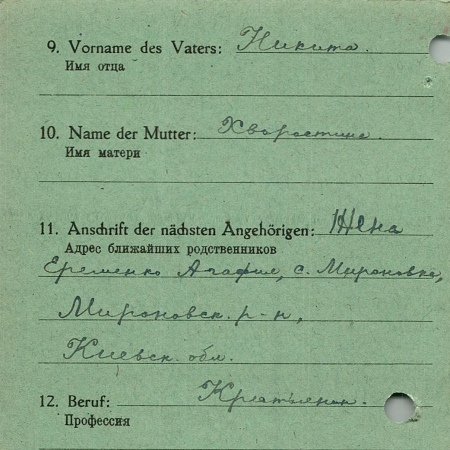 9. Vorname des Vaters: Никита.
Имя отца
10. Name der Mutter: Хворостина.
Имя матери
11. Anschrift der nächsten Angehörigen: Жена
Адрес ближайших родственников
Еременко Агафия, с. Мироновка,
Мироновск. р-н,
Киевск. обл.
12. Beruf:
Профессия